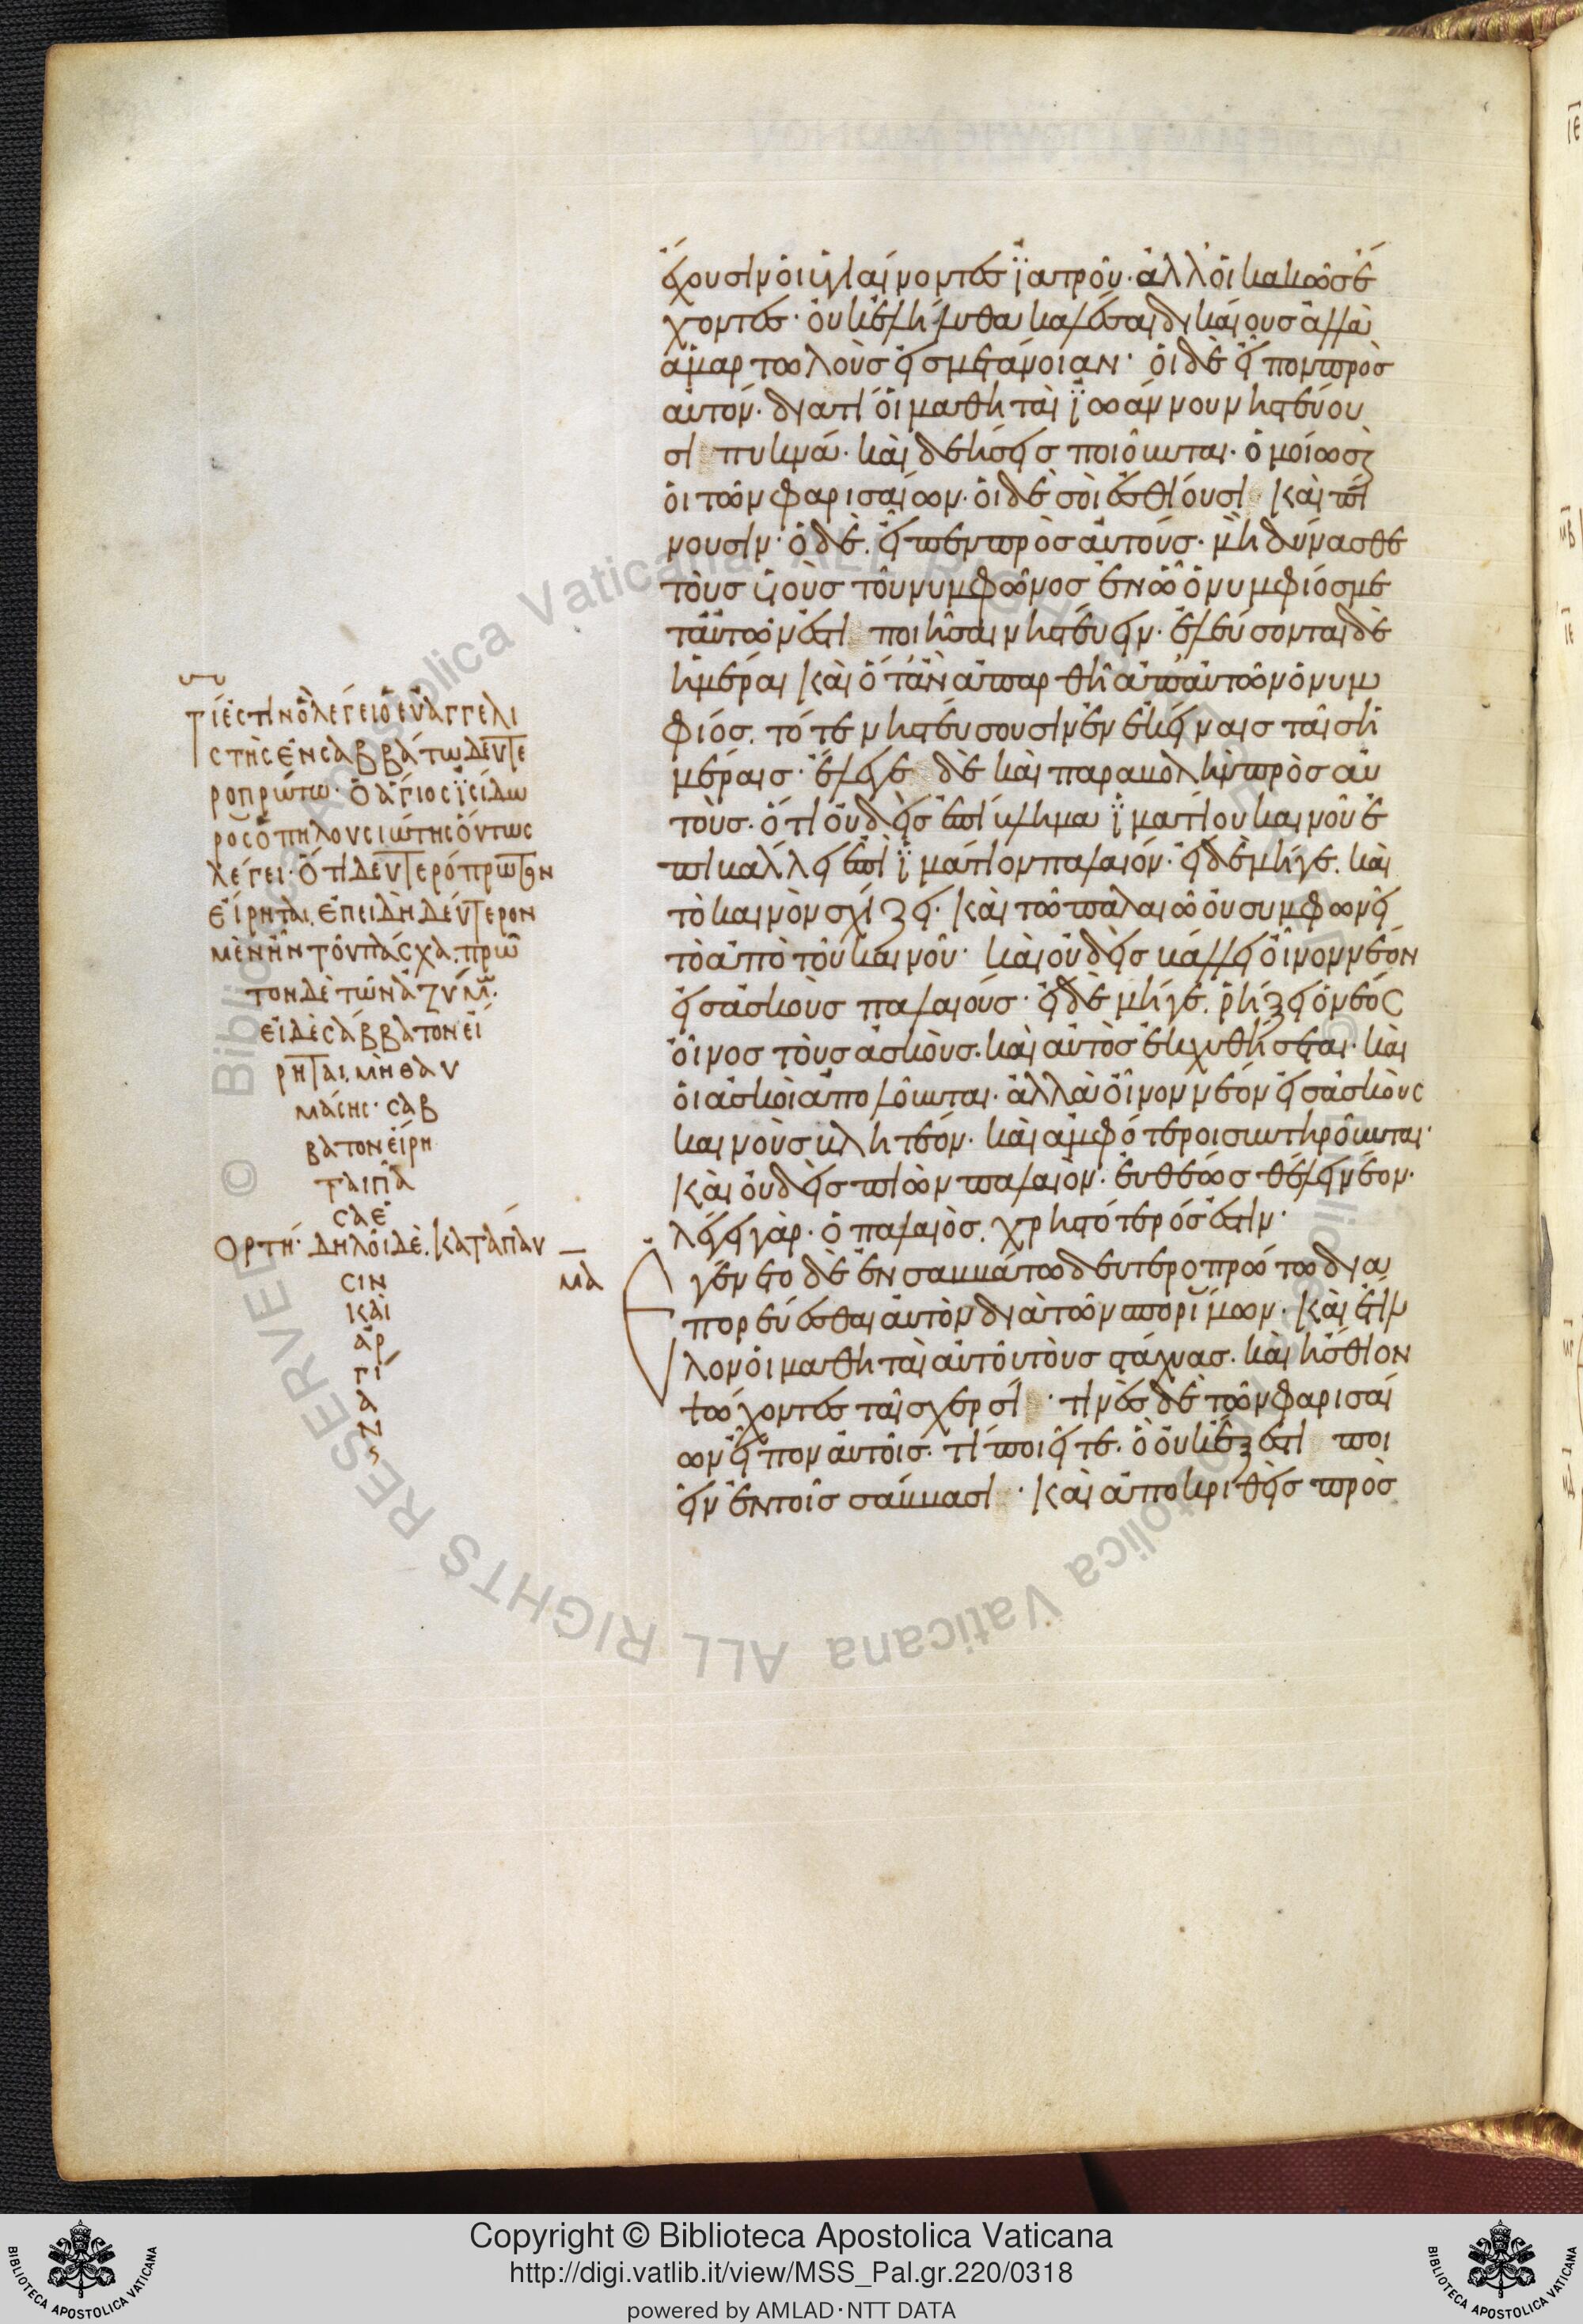 ἔχουσιν οἱ ὑγιαίνοντες ἰατροῦ· ἀλλ' οἱ κακῶς ἔ
χοντες· οὐκ ἐλήλυθα καλέσαι δικαίους ἀλλὰ
ἁμαρτωλοὺς εἰς μετάνοιαν· οἱ δὲ εἶπον πρὸς
αὐτόν· διατί οἱ μαθηταὶ ἰωάννου νηστεύου
σι πυκνά· καὶ δεήσεις ποιοῦνται· ὁμοίως καὶ
οἱ τῶν φαρισαίων· οἱ δὲ σοὶ ἐσθίουσι καὶ πί
νουσιν· ὁ δὲ εἶπεν πρὸς αὐτούς· μὴ δύνασθε
τοὺς υἱοὺς τοῦ νυμφῶνος ἐν ᾧ ὁ νυμφίος με
τ' αὐτῶν ἐστὶ ποιῆσαι νηστεύειν· ἐλεύσονται δὲ
ἡμέραι καὶ ὅταν ἀπαρθῇ ἀπ' αὐτῶν ὁ νυμ
φίος. τότε νηστεύσουσιν ἐν ἐκείναις ταῖς ἡ
μέραις· ἔλεγε δὲ καὶ παραβολὴν πρὸς αὐ
τούς. ὅτι οὐδεὶς ἐπίβλημα ἱματίου καινοῦ ἐ
πιβάλλει ἐπὶ ἱμάτιον παλαιόν· εἰ δὲ μήγε. καὶ
τὸ καινὸν σχίζει· καὶ τῷ παλαιῷ οὐ συμφωνεῖ
τὸ ἀπὸ τοῦ καινοῦ· καὶ οὐδεὶς βάλλει οἶνον νέον
εἰς ἀσκοὺς παλαιούς· εἰ δὲ μήγε. ῥήξει ὁ νέος
οἶνος τοὺς ἀσκούς. καὶ αὐτὸς ἐκχυθήσεται· καὶ
οἱ ἀσκοὶ ἀπολοῦνται· ἀλλὰ οἶνον νέον εἰς ἀσκοὺς
καινοὺς βλητέον· καὶ ἀμφότεροι συντηροῦνται·
καὶ οὐδεὶς πιὼν παλαιὸν· εὐθέως θέλει νέον·
λέγει γάρ· ὁ παλαιὸς. χρηστότερός ἐστιν·
μα Ἐγένετο δὲ ἐν σαββάτω δευτεροπρώτω δια
πορεύεσθαι αὐτὸν διὰ τῶν σπορίμων· καὶ ἔτιλ
λον οἱ μαθηταὶ αὐτοῦ τοὺς στάχυας. καὶ ἤσθιον
ψώχοντες ταῖς χερσί· τινὲς δὲ τῶν φαρισαί
ων εἶπον αὐτοῖς· τί ποιεῖτε· ὃ οὐκ ἔξεστι ποι
εῖν ἐν τοῖς σάββασι· καὶ ἀποκριθεὶς πρὸς
τί ἐστιν ὃ λέγει ὁ εὐαγγελι
στὴς ἐν σαββάτω δευτε
ροπρώτω· ὁ ἅγιος ἰσίδω
ρος ὁ πηλουσιώτης οὕτως
λέγει· ὅτι δευτερόπρωτον
εἴρηται. ἐπειδὴ δεύτερον
μὲν ἦν τοῦ πάσχα. πρῶ
τον δὲ τῶν ἀζύμ·
εἰ δὲ σάββατον εἴ
ρηται. μὴ θαυ
μάσης· σαβ
βατον εἴρη
ται πᾶ
σα ἑ
ορτή· δηλοῖ δὲ. κατάπαυ
σιν
καὶ
ἀρ
γί
α
ν
Copyright © Biblioteca Apostolica Vaticana
http://digi.vatlib.it/view/MSS_Pal.gr.220/0318
powered by AMLAD·NTT DATA